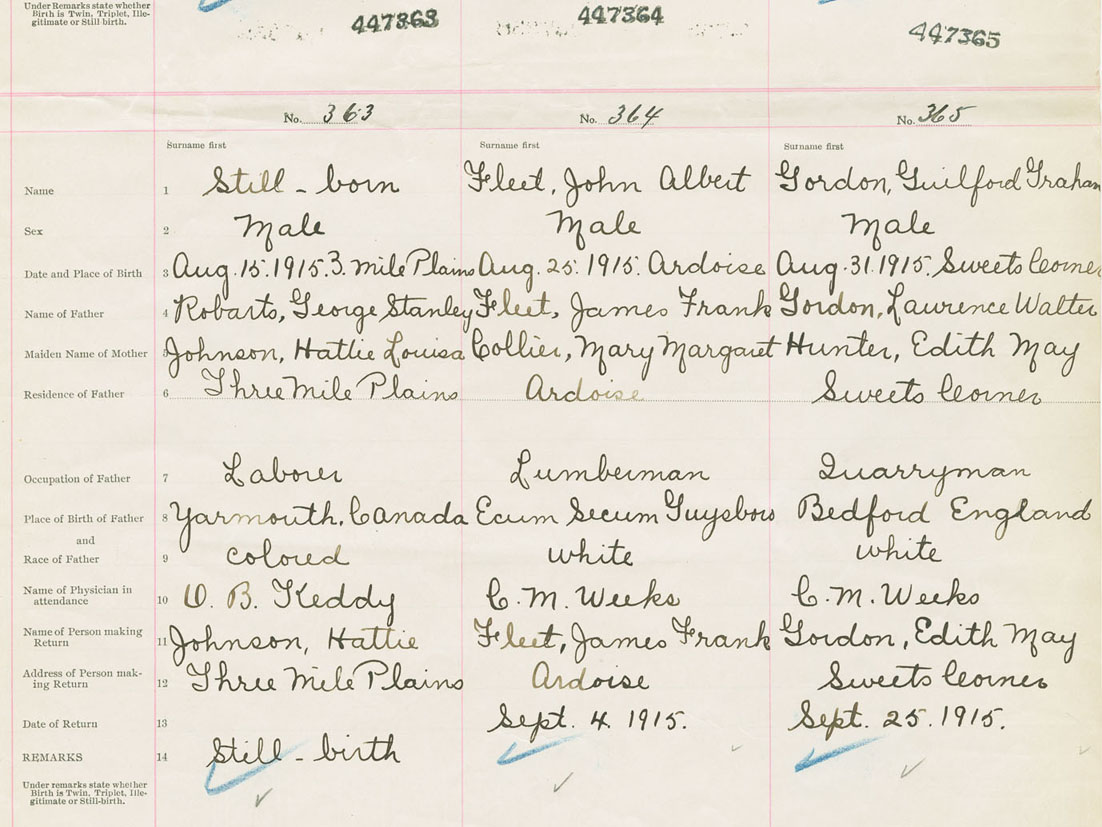 Under Remarks state whether
Birth is Twin, Triplet, Ille-
gitimate or Still-birth.
447363 447364 447365
No. 363 No. 364 No. 365
Surname first Surname first Surname first
Name 1 Still-born Fleet, John Albert Gordon, Guilford Graham
Sex 2 Male Male Male
Date and Place of Birth 3 Aug. 15. 1915. 3. Mile Plains Aug. 25. 1915. Ardoise Aug. 31. 1915. Sweets Corner
Name of Father 4 Robarts, George Stanley Fleet, James Frank Gordon, Laurence Walter
Maiden Name of Mother 5 Johnson, Hattie Louisa Collier, Mary Margaret Hunter, Edith May
Residence of Father 6 Three Mile Plains Ardoise Sweets Corner
Occupation of Father 7 Laborer Lumberman Quarryman
Place of Birth of Father 8 Yarmouth, Canada Ecum Secum Guysboro Bedford England
and
Race of Father 9 colored white white
Name of Physician in
attendance 10 O. B. Keddy C. M. Weeks C. M. Weeks
Name of Person making
Return 11 Johnson, Hattie Fleet, James Frank Gordon, Edith May
Address of Person mak-
ing Return 12 Three Mile Plains Ardoise Sweets Corner
Date of Return 13 Sept. 4. 1915. Sept. 25. 1915.
REMARKS 14 Still-birth
Under remarks state whether
Birth is Twin, Triplet, Ille-
gitimate or Still-birth.